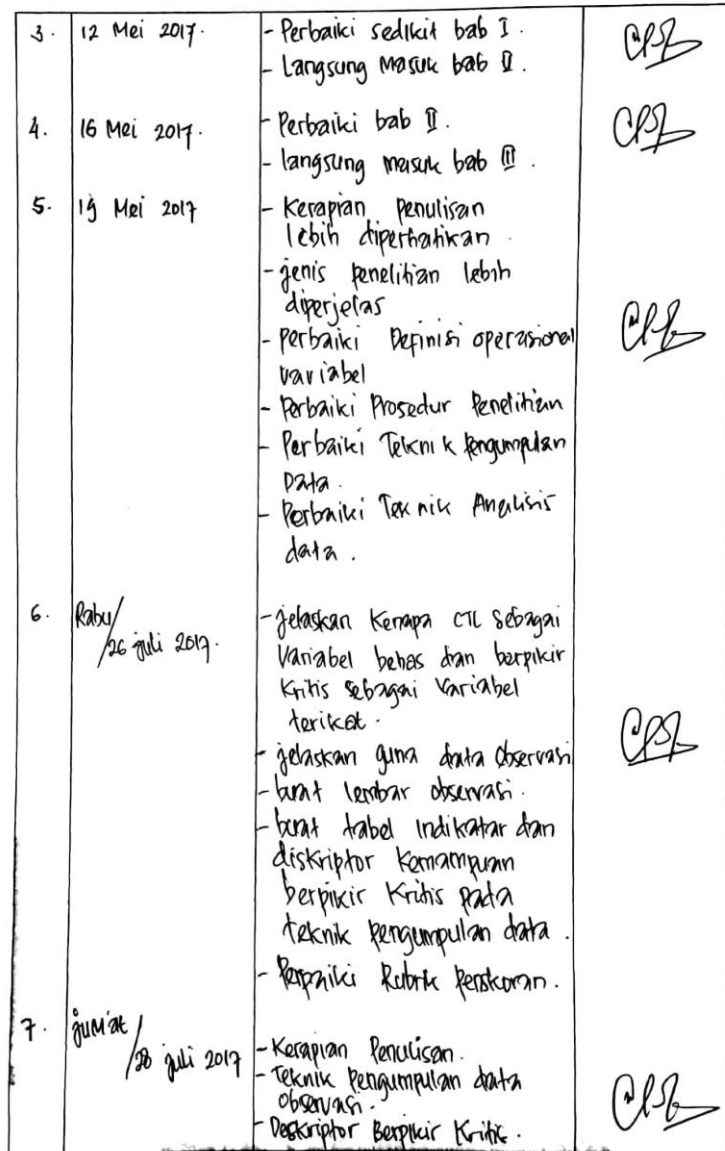 3. 12 Mei 2017. - Perbaiki sedikit bab I.
- Langsung Masuk bab II.
4. 16 Mei 2017. - Perbaiki bab II.
- langsung masuk bab III.
5. 19 Mei 2017 - Kerapian penulisan
lebih diperhatikan.
- jenis penelitian lebih
diperjelas
- perbaiki Definisi operasional
variabel
- Perbaiki Prosedur Penelitian
- Perbaiki Teknik Pengumpulan
Data.
- Perbaiki Teknik Analisis
data.
6. Rabu/ - jelaskan Kenapa CTL Sebagai
26 juli 2017. Variabel bebas dan berpikir
Kritis sebagai Variabel
terikat.
- jelaskan guna data Observasi
- buat lembar observasi.
- buat tabel Indikatar dan
diskriptor Kemampuan
berpikir Kritis pada
teknik pengumpulan data.
- Perpaiki Rubrik Penskoran.
7. jum'at/
28 juli 2017 - Kerapian Penulisan.
- Teknik Pengumpulan data
observasi.
- Deskriptor Berpikir Kritis.